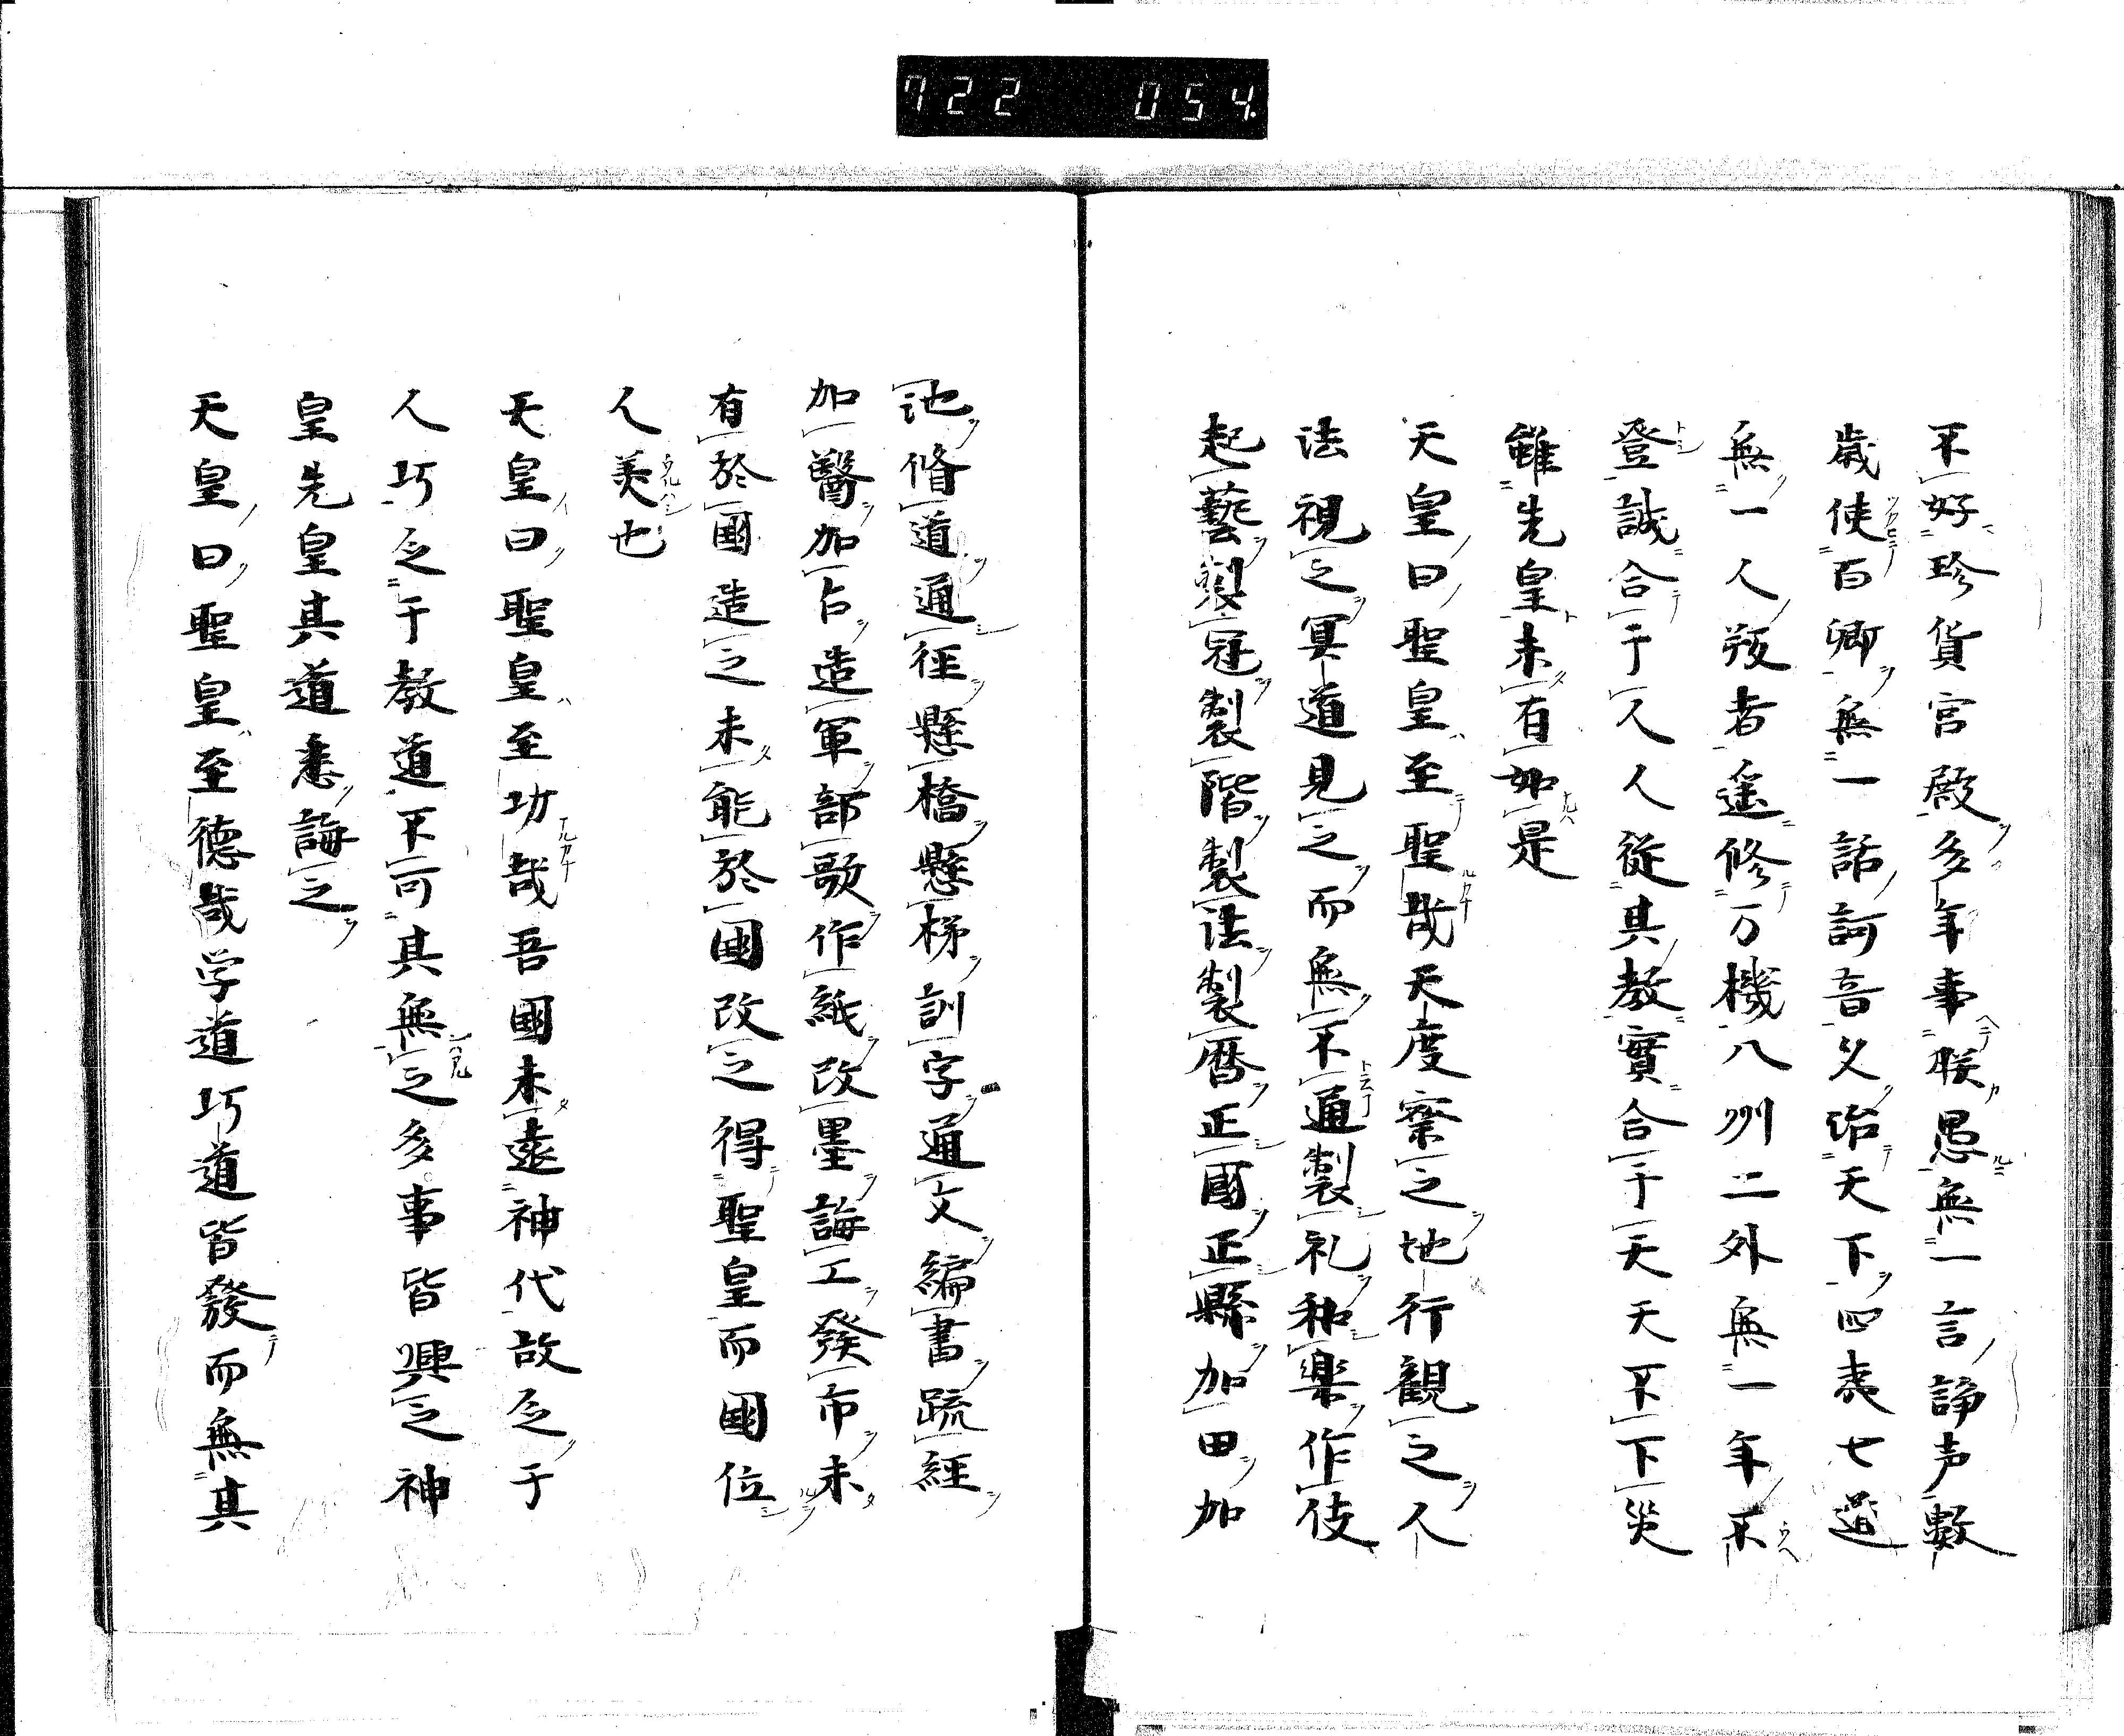 722 054
不好珍貨宮殿多年事朕愚無一言諍声數
歳使百卿無一話訶音久治天下四夷七道
無一人叛者遥修万機八州二外無一年不
登誠合于人人從其教實合于天天不下災
雖先皇未有如是
天皇曰聖皇至聖哉天度察之地行観之人
法視之冥道見之而無不通製礼和樂作伎
起藝製冠製階製法製暦正國正縣加田加
池脩道通徑懸橋懸梯訓字通文編書疏經
加醫加占造軍部歌作紙改墨誨工發市未
有於國造之未能於國改之得聖皇而國位
人美也
天皇曰聖皇至功哉吾國未遠神代故乏于
人巧乏于教道不可其無之多事皆興之神
皇先皇其道悉誨之
天皇曰聖皇至德哉学道巧道皆發而無其